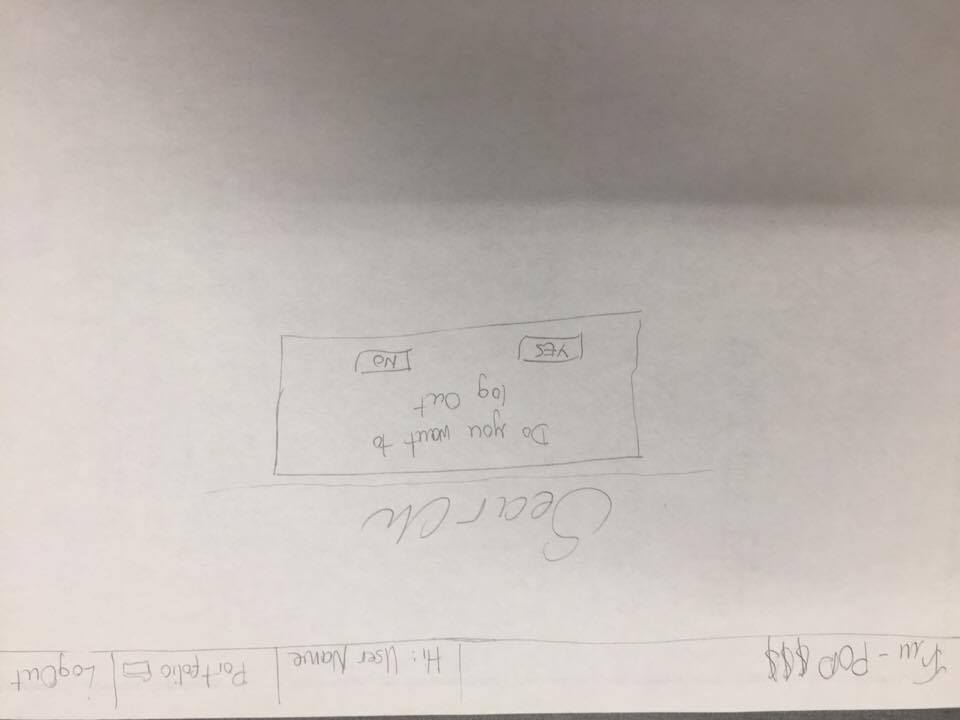 - POP $$$ Hi: User Name Portfolio LogOut
Search
Do you want to
log Out
YES NO